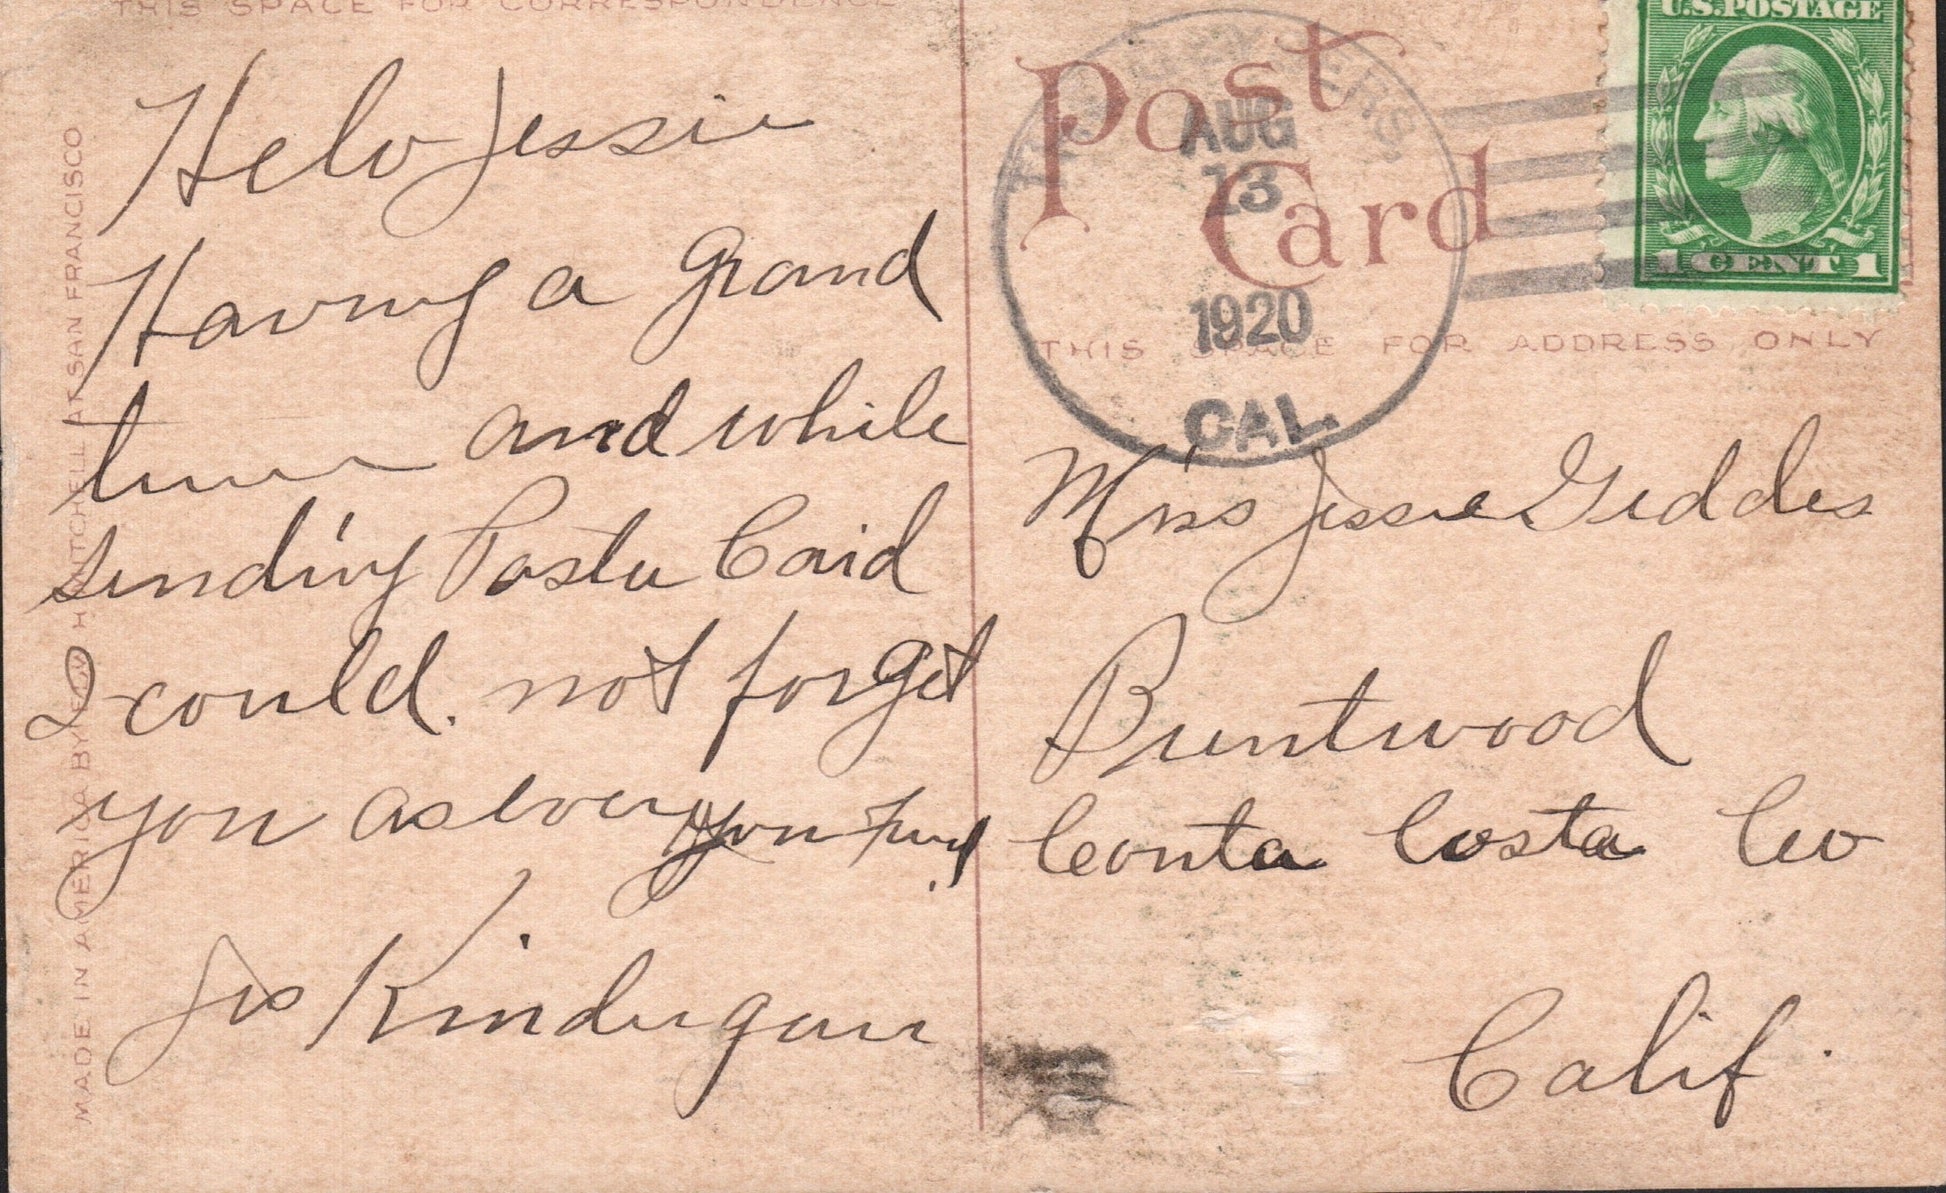 THIS SPACE FOR CORRESPONDENCE
Helo Jessie
Having a grand
time and while
sending Postie Card
I could not forget
you as ever your Friend
Jas Kindergan
MADE IN AMERICA BY EDW. H. MITCHELL AT SAN FRANCISCO
Post Card
AUG
13
1920
CAL.
U.S. POSTAGE
1 CENT 1
THIS SPACE FOR ADDRESS ONLY
Miss Jessie Geddes
Brentwood
Contra Costa Co
Calif.